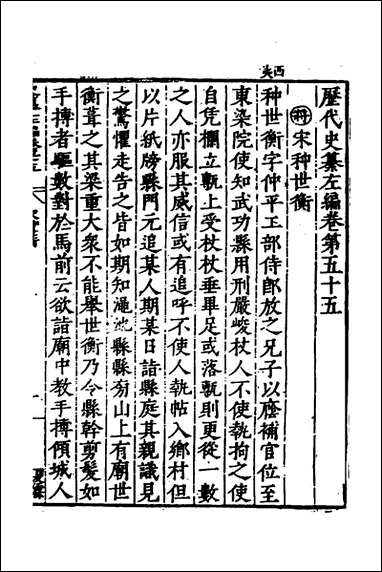 歷代史纂左編卷第五十五
將 宋种世衡
种世衡字仲平工部侍郎放之兄子以廕補官位至
東染院使知武功縣用刑嚴峻杖人不使執拘之使
自凭欄立甎上受杖杖垂畢足或落甎則更從一數
之人亦服其威信或有追呼不使人執帖入鄉村但
以片紙牓縣門元追某人期某日詣縣庭其親識見
之驚懼走告之皆如期知澠池縣縣旁山上有廟世
衡葺之其梁重大衆不能舉世衡乃令縣幹剪髮如
手搏者驅數對於馬前云欲詣廟中教手搏傾城人